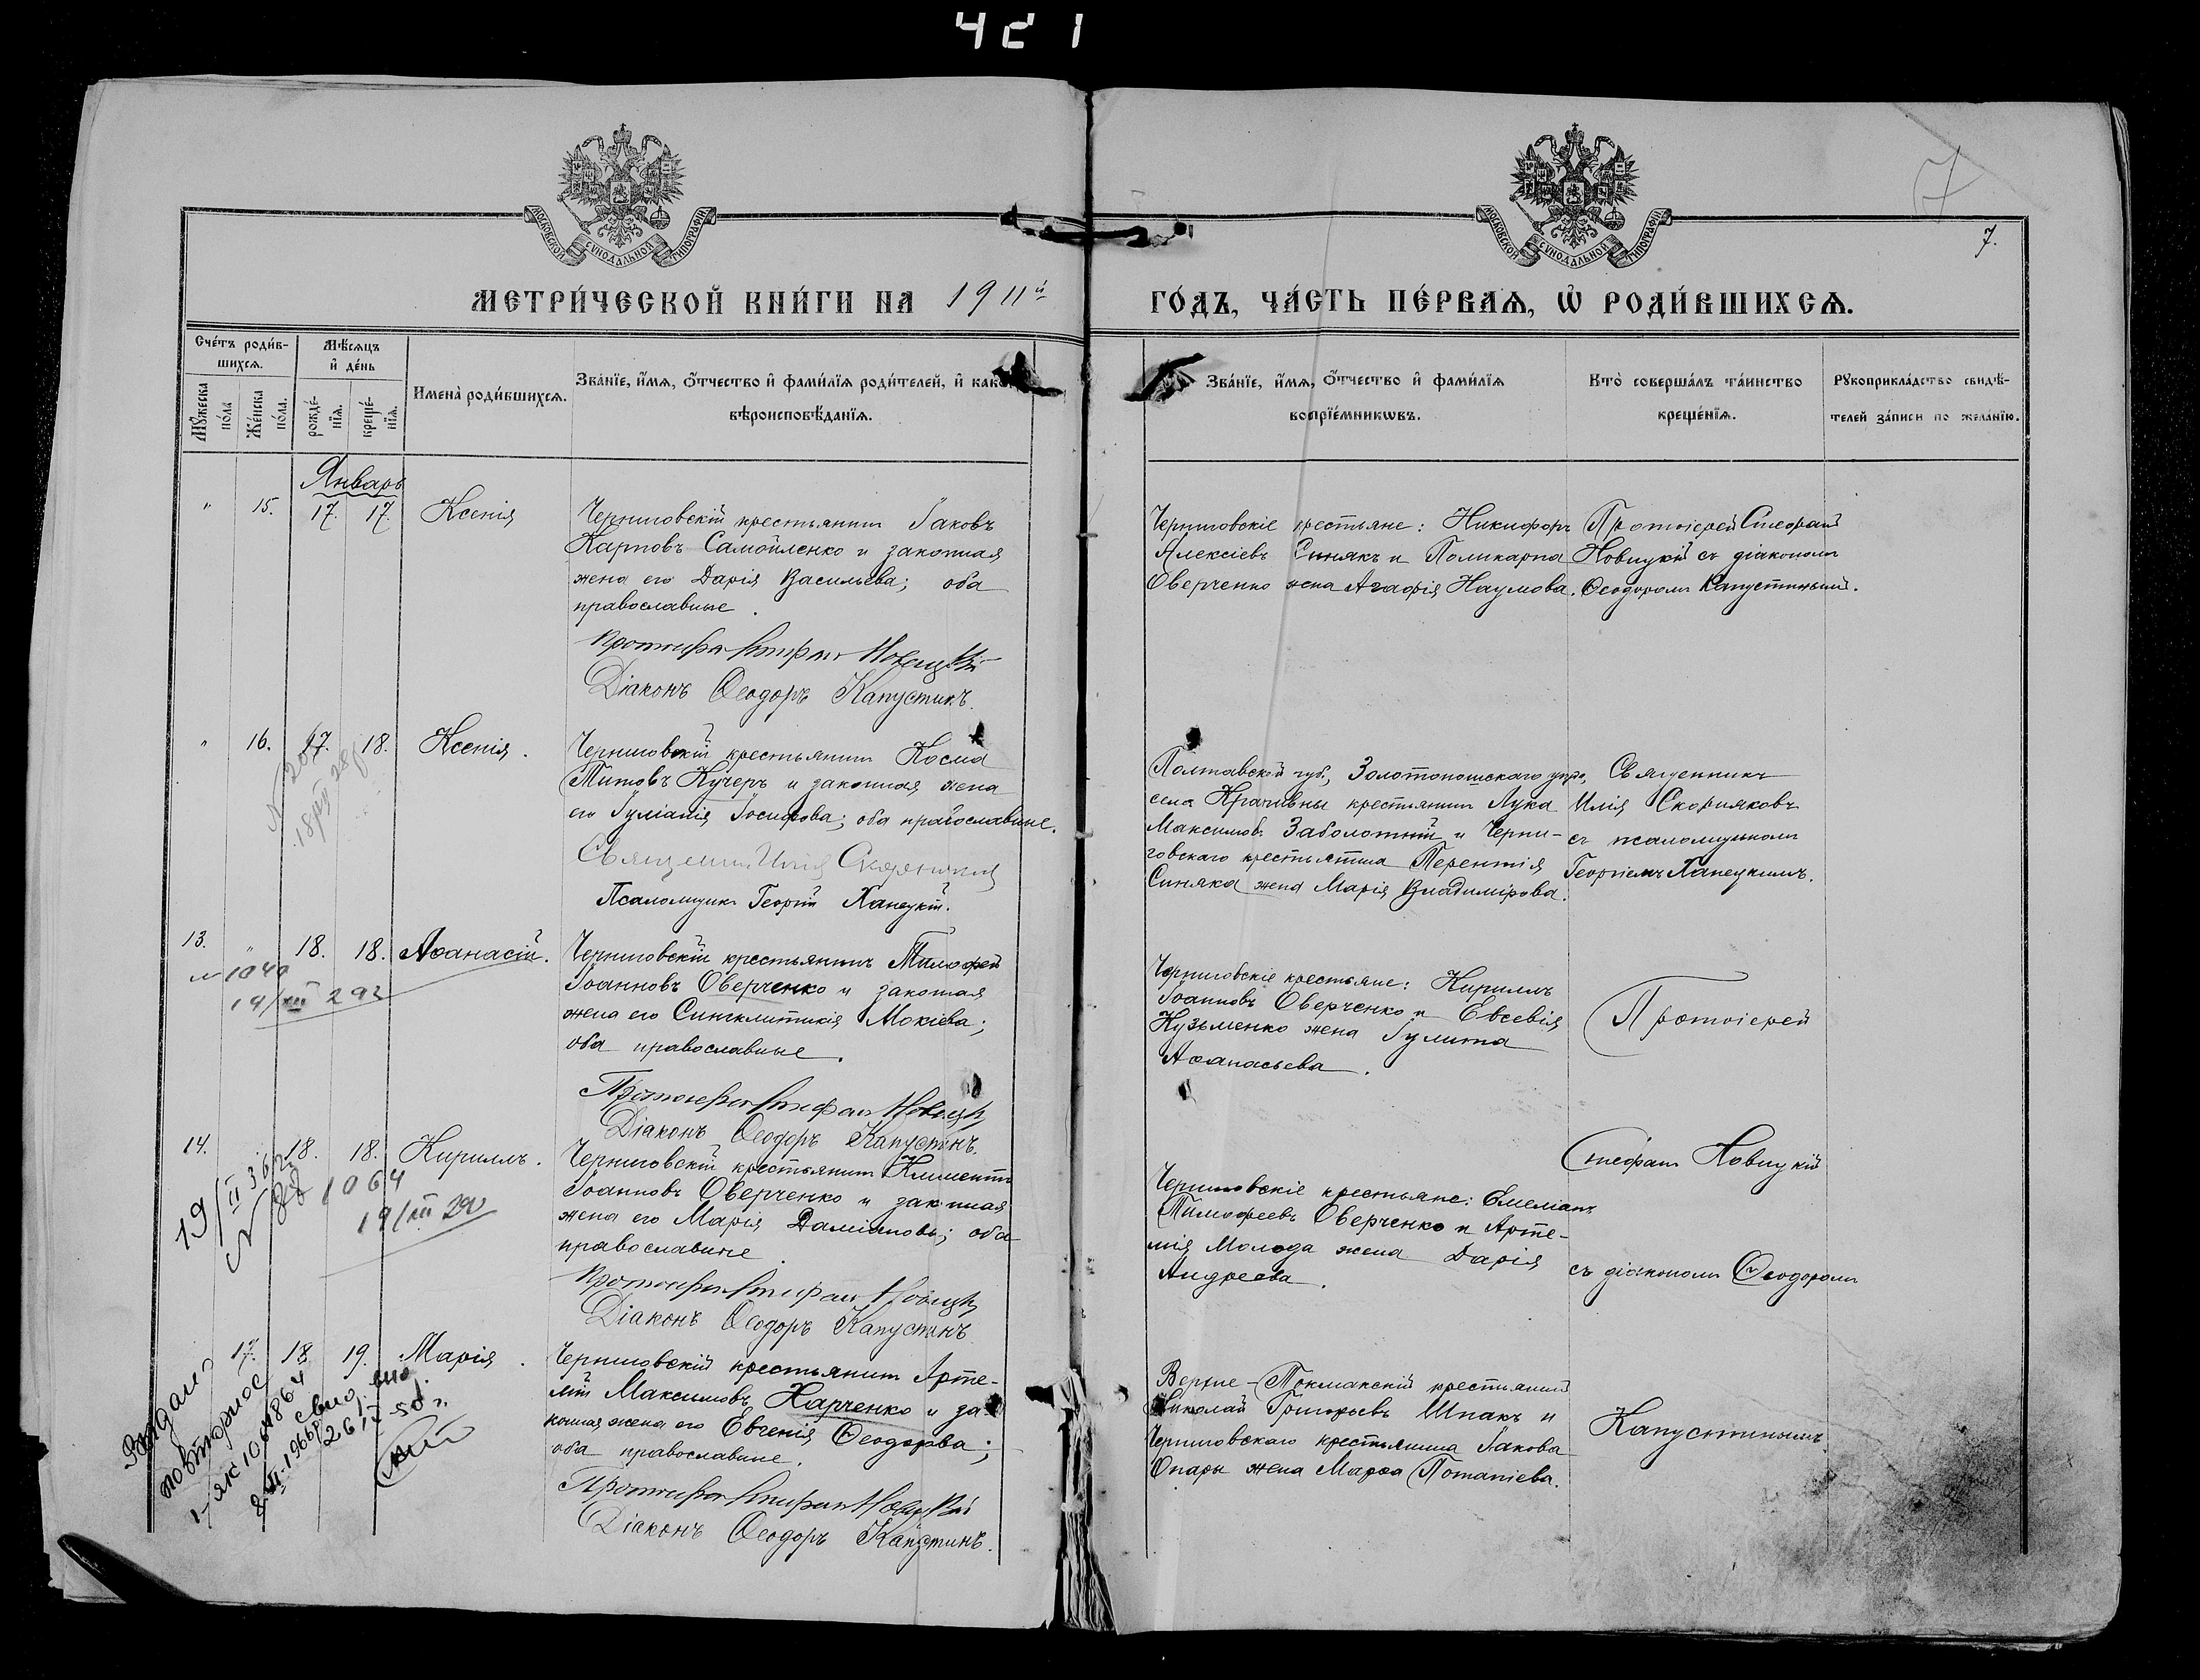 421
МОСКОВСКОЙ СѴНОДАЛЬНОЙ ТИПОГРАФІИ
МОСКОВСКОЙ СѴНОДАЛЬНОЙ ТИПОГРАФІИ
7
7.
МЕТРИ́ЧЕСКОЙ КНИ́ГИ НА 1911й
ГО́ДЪ, ЧА́СТЬ ПЕ́РВАѦ, Ѡ҆ РОДИ́ВШИХСѦ.
Сче́тъ роди́в-
шихсѧ.
Мꙋ́жеска по́ла
Же́нска по́ла.
Мѣ́сѧцъ
и҆ де́нь
рожде́-
нїѧ.
креще́-
нїѧ.
Имена̀ роди́вшихсѧ.
Зва́нїе, и҆́мѧ, ѻ҆́тчество и҆ фами́лїѧ роди́телей, и҆ како́
вѣроисповѣ́данїѧ.
Зва́нїе, и҆́мѧ, ѻ҆́тчество и҆ фами́лїѧ
воспрїе́мникѡвъ.
Кто̀ соверша́лъ та́инство
креще́нїѧ.
Рꙋкоприкла́дство свидѣ́-
телей за́писи по жела́нїю.
Январь
" 15. 17. 17. Ксенія
Черниговскій крестьянинъ Іаковъ
Карповъ Самойленко и законная
жена его Дарія Васильева; оба
православные.
Протоіерей Стефанъ Новицкій
Діаконъ Ѳеодоръ Капустинъ.
Черниговскіе крестьяне: Никифоръ
Алексіевъ Синякъ и Поликарпа
Оверченко жена Агафія Наумова.
Протоіерей Стефанъ
Новицкій съ діакономъ
Ѳеодоромъ Капустинымъ.
" 16. 17. 18. Ксенія.
Черниговскій крестьянинъ Косма
Титовъ Кучеръ и законная жена
его Іуліанія Іосифова; оба православные.
Священникъ Илія Скорняковъ
Псаломщикъ Георгій Ханецкій.
Полтавской губ., Золотоношскаго уѣзда,
села Крапивны крестьянинъ Лука
Максимовъ Заболотній и Черни-
говскаго крестьянина Терентія
Синяка жена Марія Владимірова.
Священникъ
Илія Скорняковъ
съ псаломщикомъ
Георгіемъ Ханецкимъ.
13. " 18. 18. Аѳанасій.
N 1040
19/III 292
Черниговскій крестьянинъ Тимофей
Іоанновъ Оверченко и законная
жена его Синклитикія Мокіева;
оба православные.
Протоіерей Стефанъ Новицкій
Діаконъ Ѳеодоръ Капустинъ.
Черниговскіе крестьяне: Кириллъ
Іоанновъ Оверченко и Евсевія
Кузьменко жена Іулита
Аѳанасьева.
Протоіерей
14. 18. 18. Кириллъ.
1064
19/III 290
Черниговскій крестьянинъ Климентъ
Іоанновъ Оверченко и законная
жена его Марія Даміанова; оба
православные
Протоіерей Стефанъ Новицкій
Діаконъ Ѳеодоръ Капустинъ
Черниговскіе крестьяне: Емеліанъ
Тимофеевъ Оверченко и Арте-
мія Молода жена Дарія
Андреева.
Стефанъ Новицкій
съ діакономъ Ѳеодоромъ
17. 18. 19. Марія.
Черниговскій крестьянинъ Арте-
мій Максимовъ Харченко и за-
конная жена его Евгенія Ѳеодорова;
оба православные.
Протоіерей Стефанъ Новицкій
Діаконъ Ѳеодоръ Капустинъ.
Верхне-Токмакскій крестьянинъ
Николай Григорьевъ Шпакъ и
Черниговскаго крестьянина Іакова
Опары жена Марѳа Потапіева.
Капустинымъ.
повторное